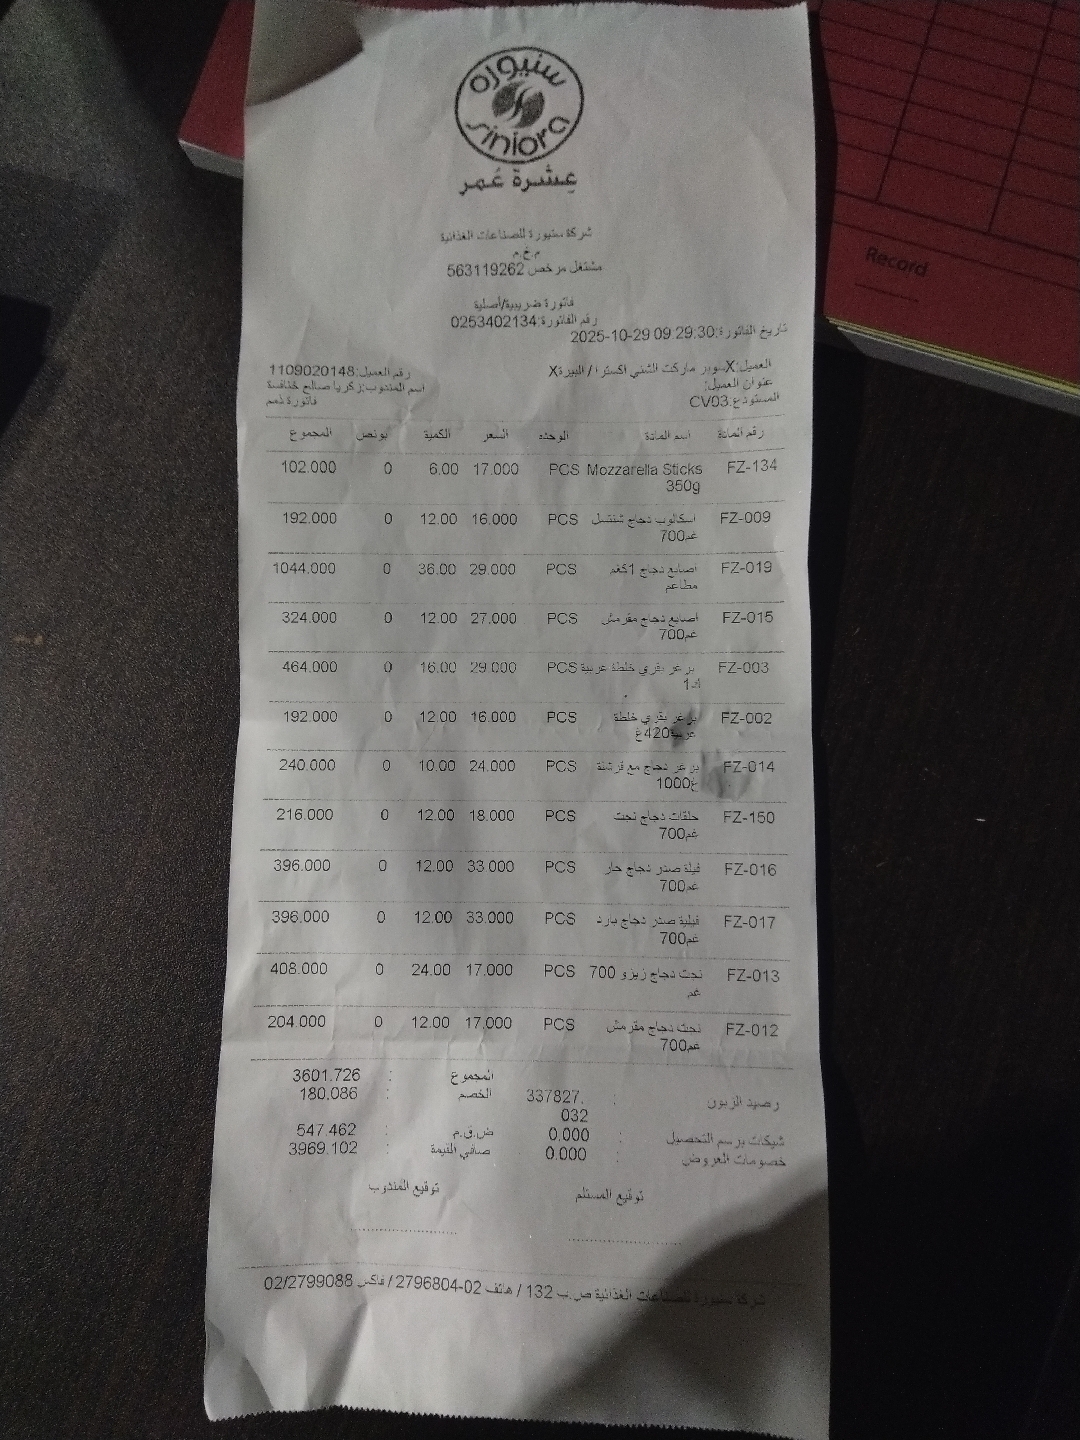 سنيورة
siniora
عِشرة عُمر
شركة سنيورة للصناعات الغذائية
م.خ.م
مشتغل مرخص 563119262
فاتورة ضريبية/أصلية
رقم الفاتورة:0253402134
تاريخ الفاتورة:2025-10-29 09:29:30
العميل:Xسوبر ماركت الشني اكسترا / البيرةX رقم العميل:1109020148
عنوان العميل: اسم المندوب:زكريا صالح خنافسة
المستودع:CV03 فاتورة ذمم
رقم المادة اسم المادة الوحده السعر الكمية بونص المجموع
FZ-134 Mozzarella Sticks PCS 17.000 6.00 0 102.000
350g
FZ-009 اسكالوب دجاج شنتسل PCS 16.000 12.00 0 192.000
700غم
FZ-019 اصابع دجاج 1كغم PCS 29.000 36.00 0 1044.000
مطاعم
FZ-015 اصابع دجاج مقرمش PCS 27.000 12.00 0 324.000
700غم
FZ-003 برغر بقري خلطة عربية PCS 29.000 16.00 0 464.000
1ك
FZ-002 برغر بقري خلطة PCS 16.000 12.00 0 192.000
عربية420غ
FZ-014 برغر دجاج مع قرشلة PCS 24.000 10.00 0 240.000
1000غ
FZ-150 حلقات دجاج نجت PCS 18.000 12.00 0 216.000
700غم
FZ-016 فيلة صدر دجاج حار PCS 33.000 12.00 0 396.000
700غم
FZ-017 فيلية صدر دجاج بارد PCS 33.000 12.00 0 396.000
700غم
FZ-013 نجت دجاج زيزو 700 PCS 17.000 24.00 0 408.000
غم
FZ-012 نجت دجاج مقرمش PCS 17.000 12.00 0 204.000
700غم
المجموع : 3601.726
رصيد الزبون : 337827.032 الخصم : 180.086
شيكات برسم التحصيل : 0.000 ض.ق.م : 547.462
خصومات العروض : 0.000 صافي القيمة : 3969.102
توقيع المستلم توقيع المندوب
شركة سنيورة للصناعات الغذائية ص.ب 132 / هاتف 02-2796804 / فاكس 02/2799088
Record